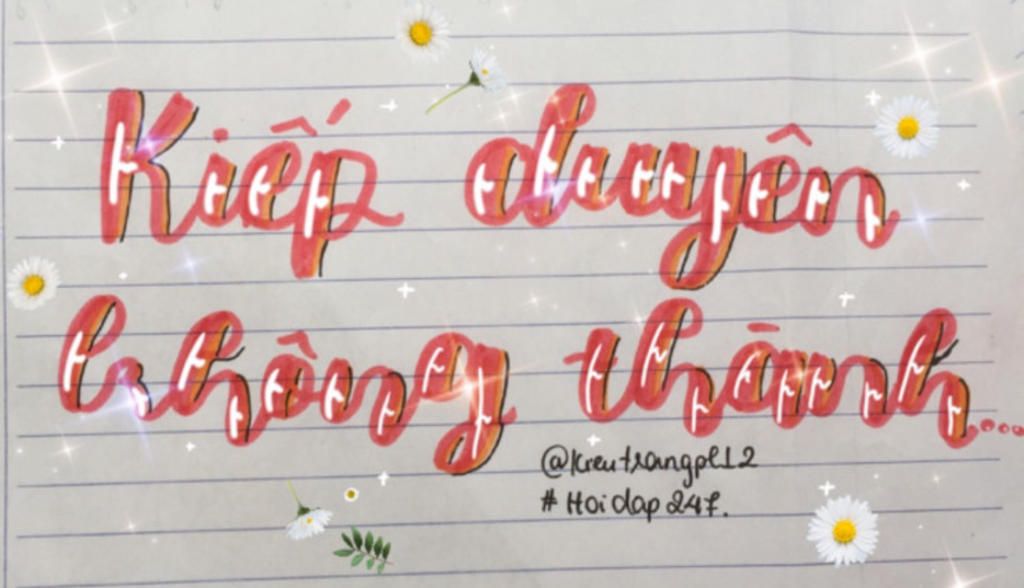 Kiếp duyên
không thành...
@kieutrangpl12
# Hoidap 247.